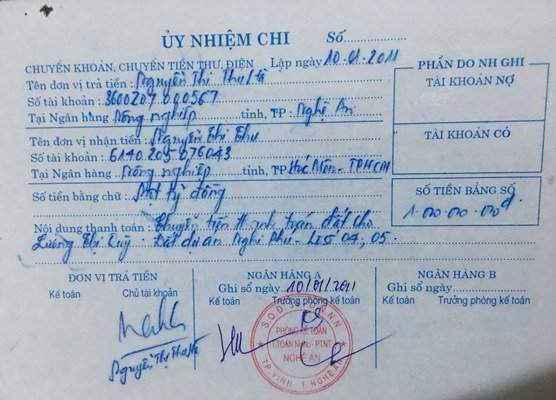 ỦY NHIỆM CHI Số
CHUYỂN KHOẢN, CHUYỂN TIỀN THƯ, ĐIỆN Lập ngày 10.01.2011
Tên đơn vị trả tiền : Nguyễn Thị Thu Hà
Số tài khoản : 3600207.000567
Tại Ngân hàng Nông nghiệp tỉnh, TP Nghệ An
Tên đơn vị nhận tiền Nguyễn Thị Thu
Số tài khoản : 6140.205.076043
Tại Ngân hàng : Nông nghiệp tỉnh, TP Hóc Môn - TPHCM
Số tiền bằng chữ : Một tỷ đồng
Nội dung thanh toán : Chuyển tiền thanh toán đất cho
Lương Thị Quý : Đất dự án Nghi Phú - 04, 05.
PHẦN DO NH GHI
TÀI KHOẢN NỢ
TÀI KHOẢN CÓ
SỐ TIỀN BẰNG SỐ
1.000.000.000đ
ĐƠN VỊ TRẢ TIỀN
Kế toán Chủ tài khoản
Nguyễn Thị Thu Hà
NGÂN HÀNG A
Ghi sổ ngày 10/01/2011
Kế toán Trưởng phòng kế toán
PHÒNG KẾ TOÁN
NGHỆ AN
TP.VINH T.NGHỆ AN
NGÂN HÀNG B
Ghi sổ ngày
Kế toán Trưởng phòng kế toán